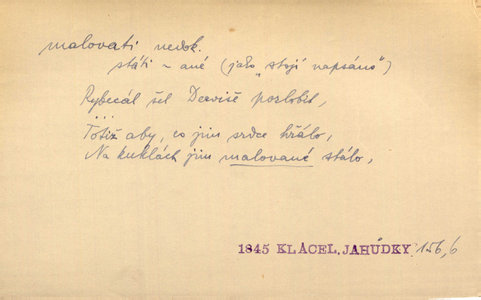 malovati nedok.
státi ~ ané (jako „stojí napsáno")
Rybecál šel Derviše pozlobit,
...
Totiž aby, co jim srdce hřálo,
Na kuklách jim malované stálo,
1845 KLÁCEL, JAHŮDKY 156,6